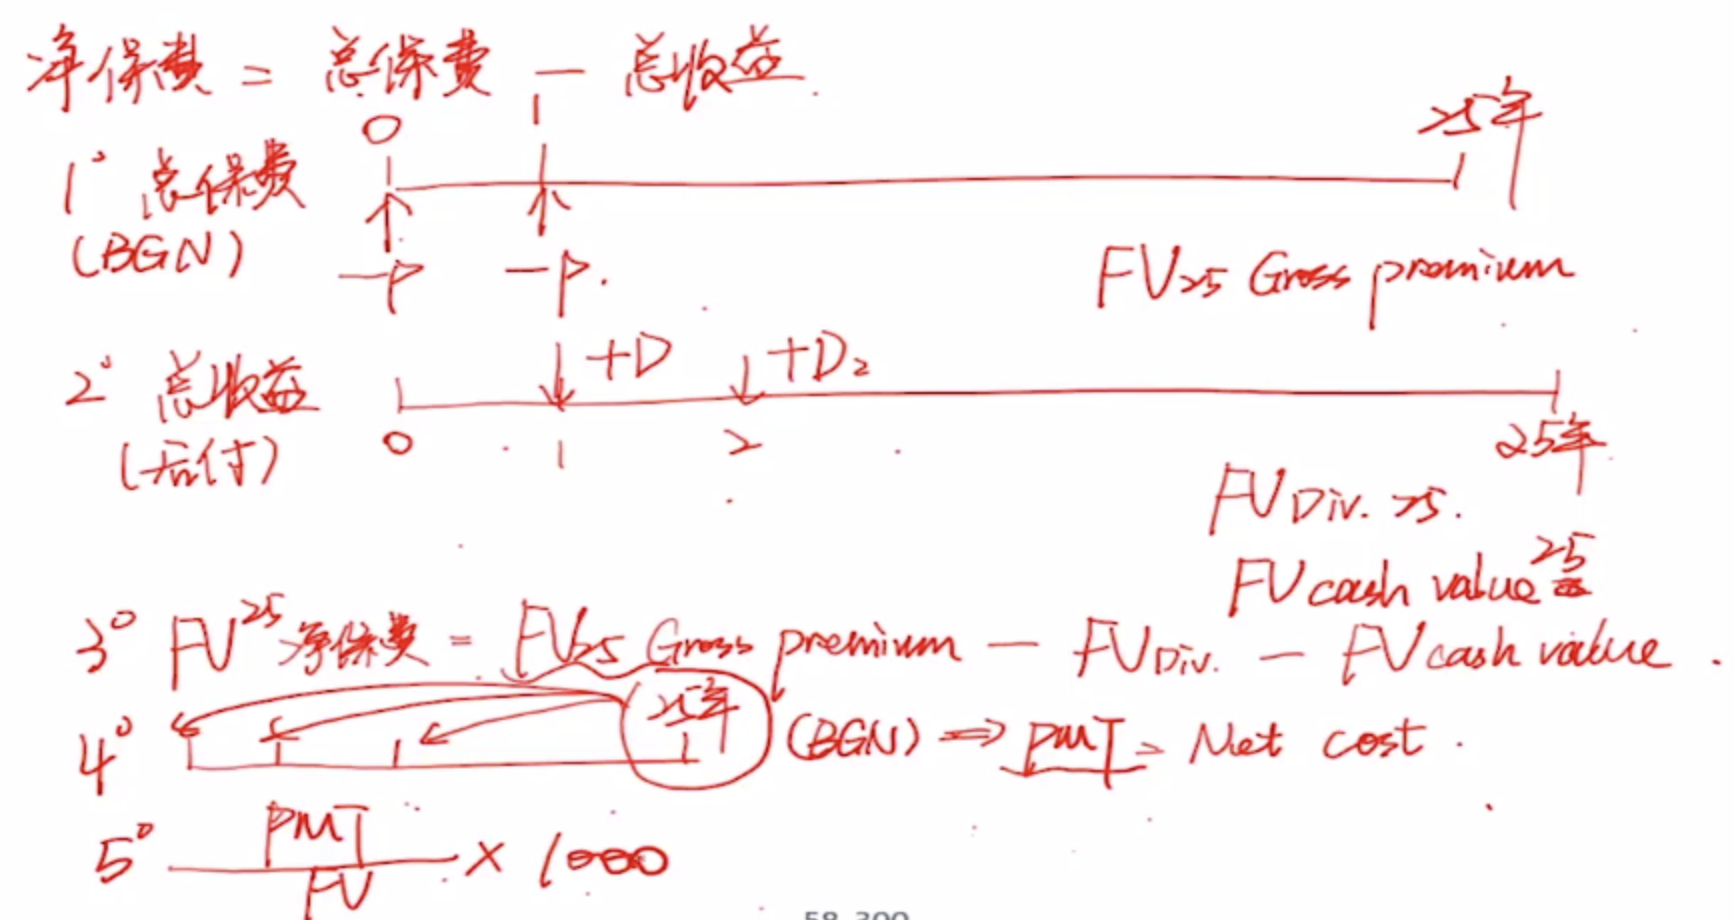 净保费 = 总保费 — 总收益
0 1 25年
1° 总保费
(BGN) —P —P.
FV25 Gross premium
2° 总收益 +D +D2
(后付) 0 1 2 25年
FV Div. 25.
FV cash value 25
3° FV25 净保费 = FV25 Gross premium — FV Div. — FV cash value.
4° 25年 (BGN) ⇒ PMT = Net cost.
5° PMT
FV × 1000